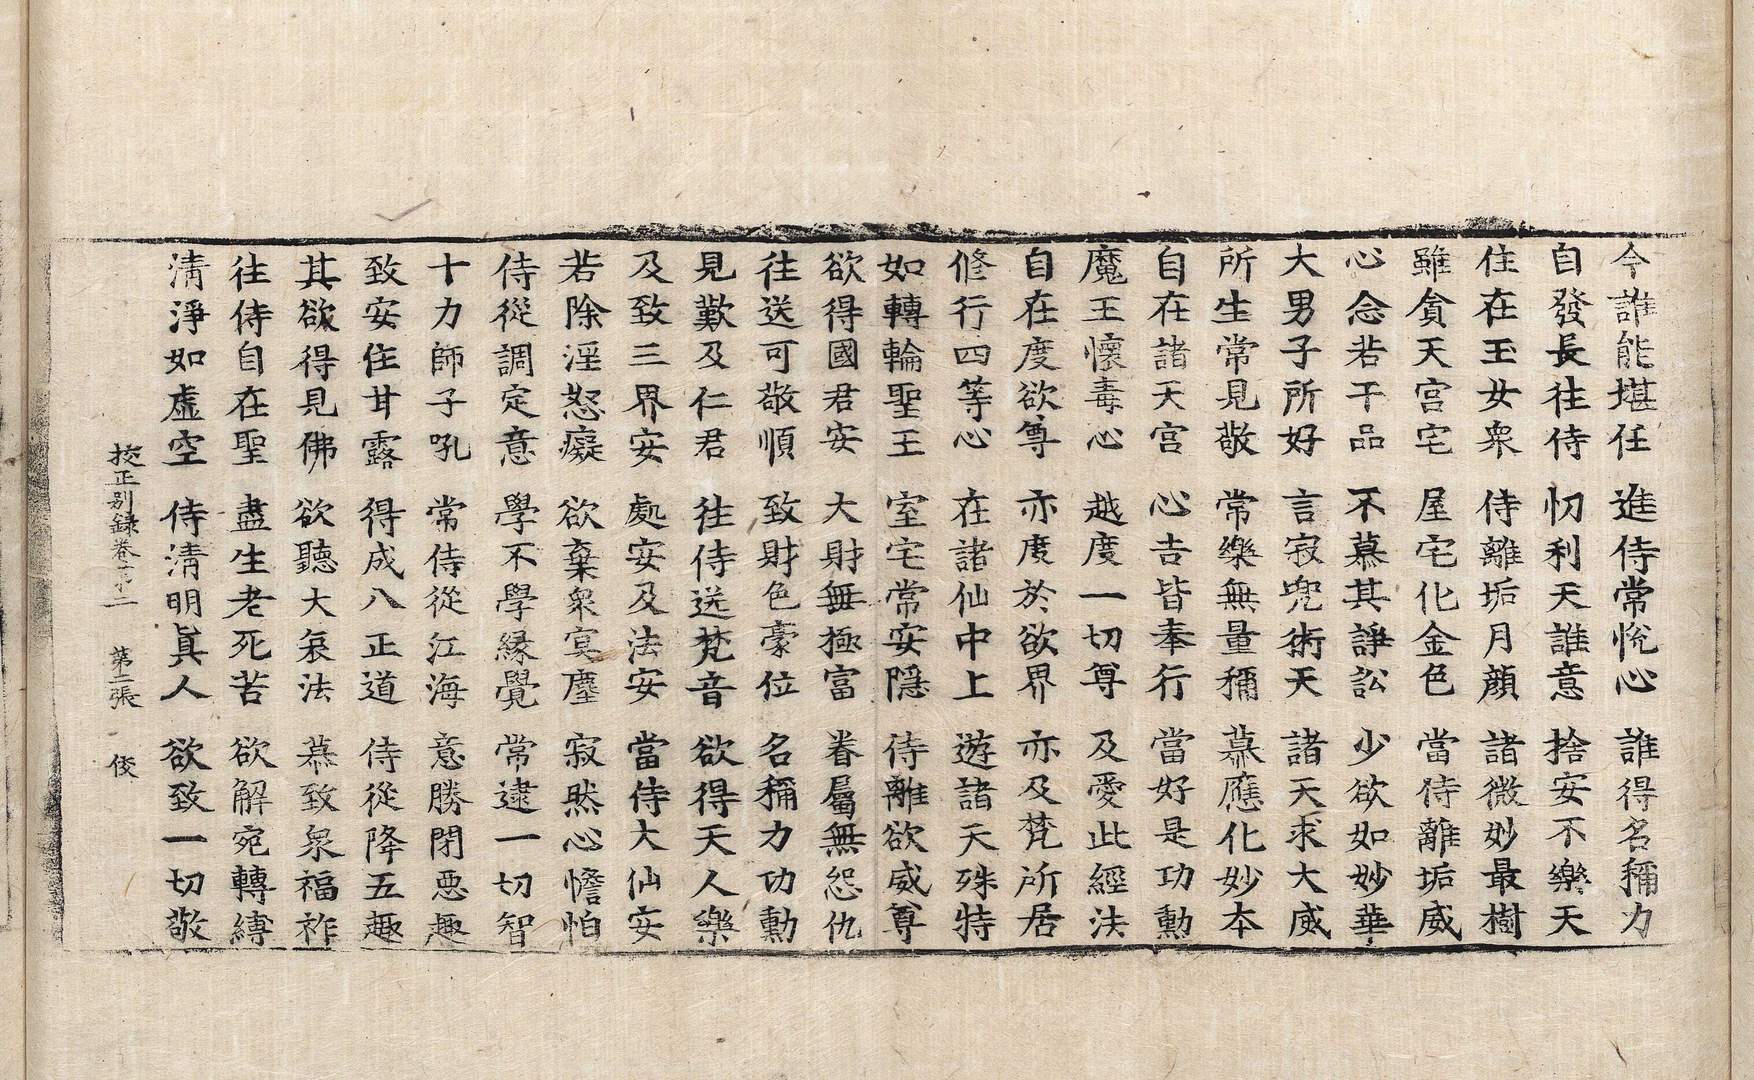 今誰能堪任　進侍常悅心　誰得名稱力
自發長往侍　忉利天誰意　捨安不樂天
住在玉女衆　侍離垢月顔　諸微妙最樹
雖貪天宮宅　屋宅化金色　當侍離垢威
心念若干品　不慕其諍訟　少欲如妙華
大男子所好　言寂兜術天　諸天求大威
所生常見敬　常樂無量稱　慕應化妙本
自在諸天宮　心吉皆奉行　當好是功勳
魔王懷毒心　越度一切尊　及愛此經法
自在度欲尊　亦度於欲界　亦及梵所居
修行四等心　在諸仙中上　遊諸天殊特
如轉輪聖王　室宅常安隠　侍離欲威尊
欲得國君安　大財無極富　眷屬無怨仇
往送可敬順　致財色豪位　名稱力功勳
見歎及仁君　往侍送梵音　欲得天人樂
及致三界安　處安及法安　當侍大仙安
若除淫怒癡　欲棄衆冥塵　寂然心憺怕
侍從調定意　學不學縁覺　常逮一切智
十力師子吼　常侍從江海　意勝閉惡趣
致安住甘露　得成八正道　侍從降五趣
其欲得見佛　欲聽大哀法　慕致衆福祚
往侍自在聖　盡生老死苦　欲解宛轉縛
清淨如虛空　侍清明眞人　欲致一切敬
挍正别録卷二　第二張　俊